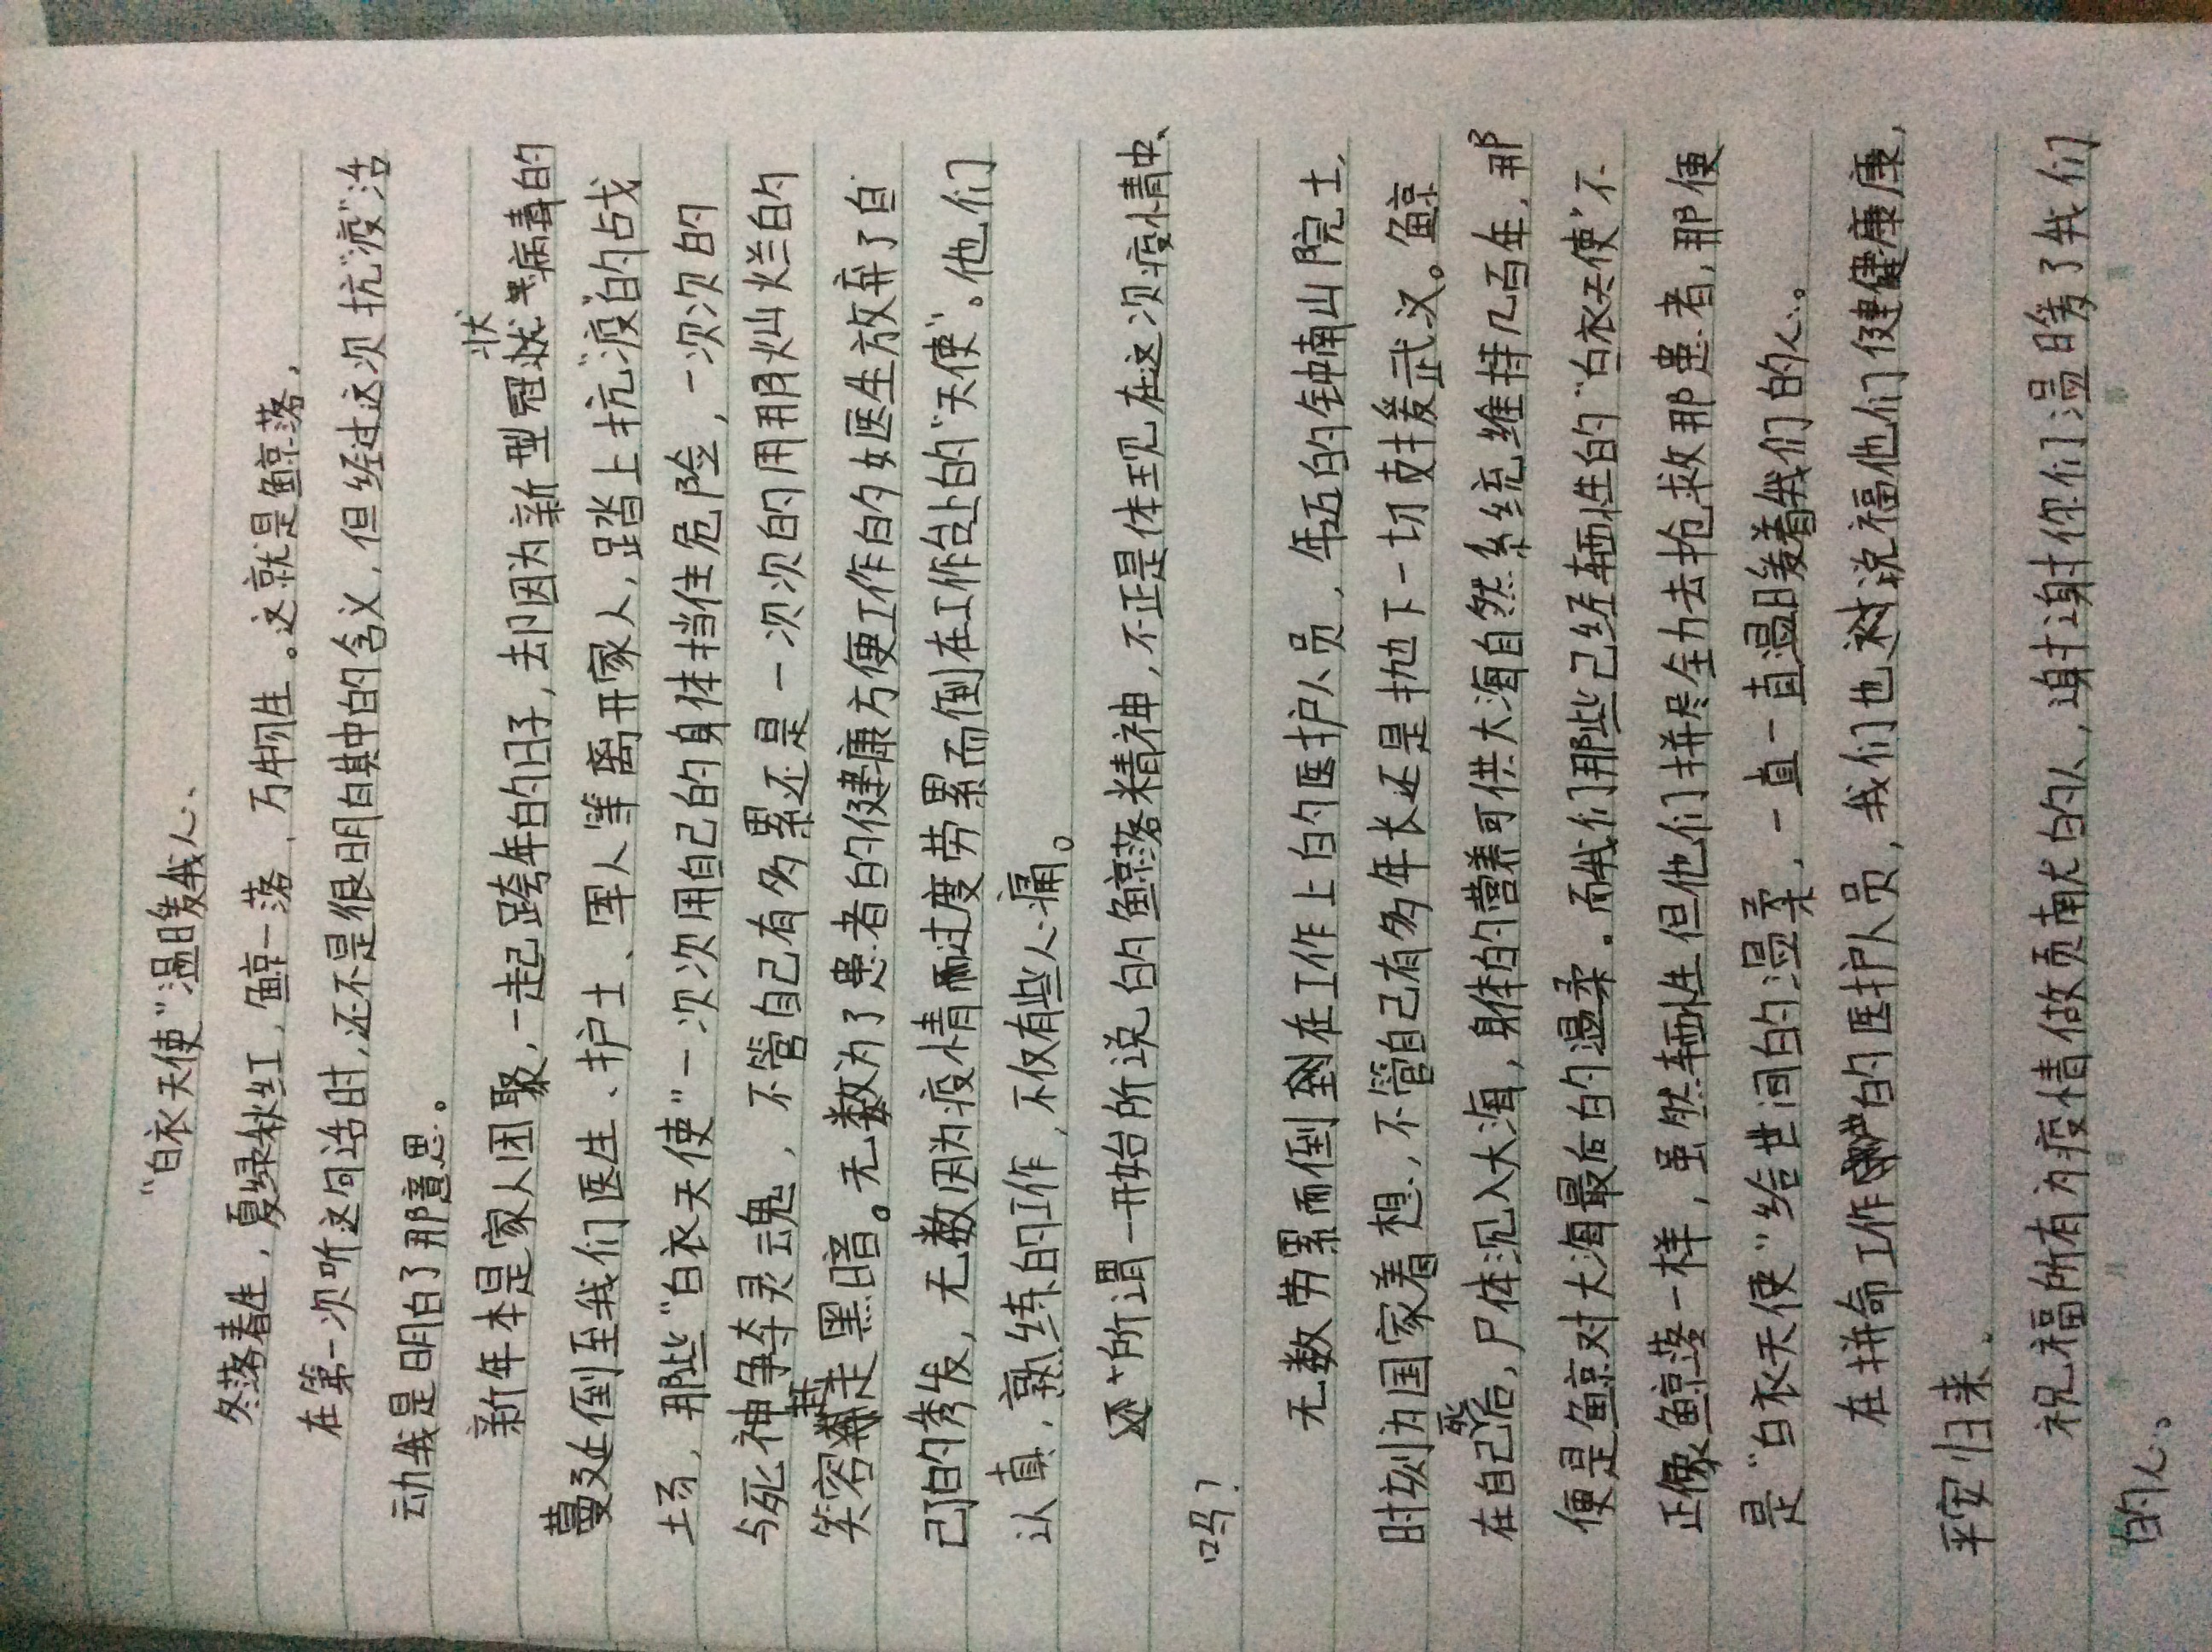 “白衣天使”温暖我心、
冬落春生，夏绿秋红，鲸一落、万物生。这就是鲸落，
在第一次听这句话时，还不是很明白其中的含义，但经过这次抗“疫”活
动我是明白了那意思。
新年本是家人团聚，一起跨年的日子，去卩因为新型冠状病毒的
蔓延倒至我们医生、护士、军人等离开家人，踏上抗“疫”的战
场，那些“白衣天使”一次次用自己的身体挡住危险，一次次的
与死神争夺灵魂，不管自己有多累还是一次次的用用灿烂的
笑容赶走黑暗。无数为了患者的健康方便工作的女医生放弃了自
己的秀发，无数因为疫情而过度劳累而倒在工作台上的“天使”。他们
认真，熟练的工作，不仅有些心痛。
“所谓一开始所说的鲸落精神，不正是体现在这次疫情中、
吗？
无数劳累而倒在工作上的医护人员，年迈的钟南山院士，
时刻为国家着想，不管自己有多年长还是抛下一切支援武汉。鲸
在自己死后，尸体沉入大海，身体的营养可供大海自然系统维持几百年，那
便是鲸对大海最后的温柔。而我们那些已经牺牲的“白衣天使”不
正像鲸落一样，虽然牺牲但他们拼尽全力去抢救那患者，那便
是“白衣天使”给世间的温柔，一直一直温暖着我们的心。
在拼命工作的医护人员，我们也祝福他们健健康康，
平安归来．
祝福所有为疫情做贡献的人，谢谢你们温暖了我们
的心。